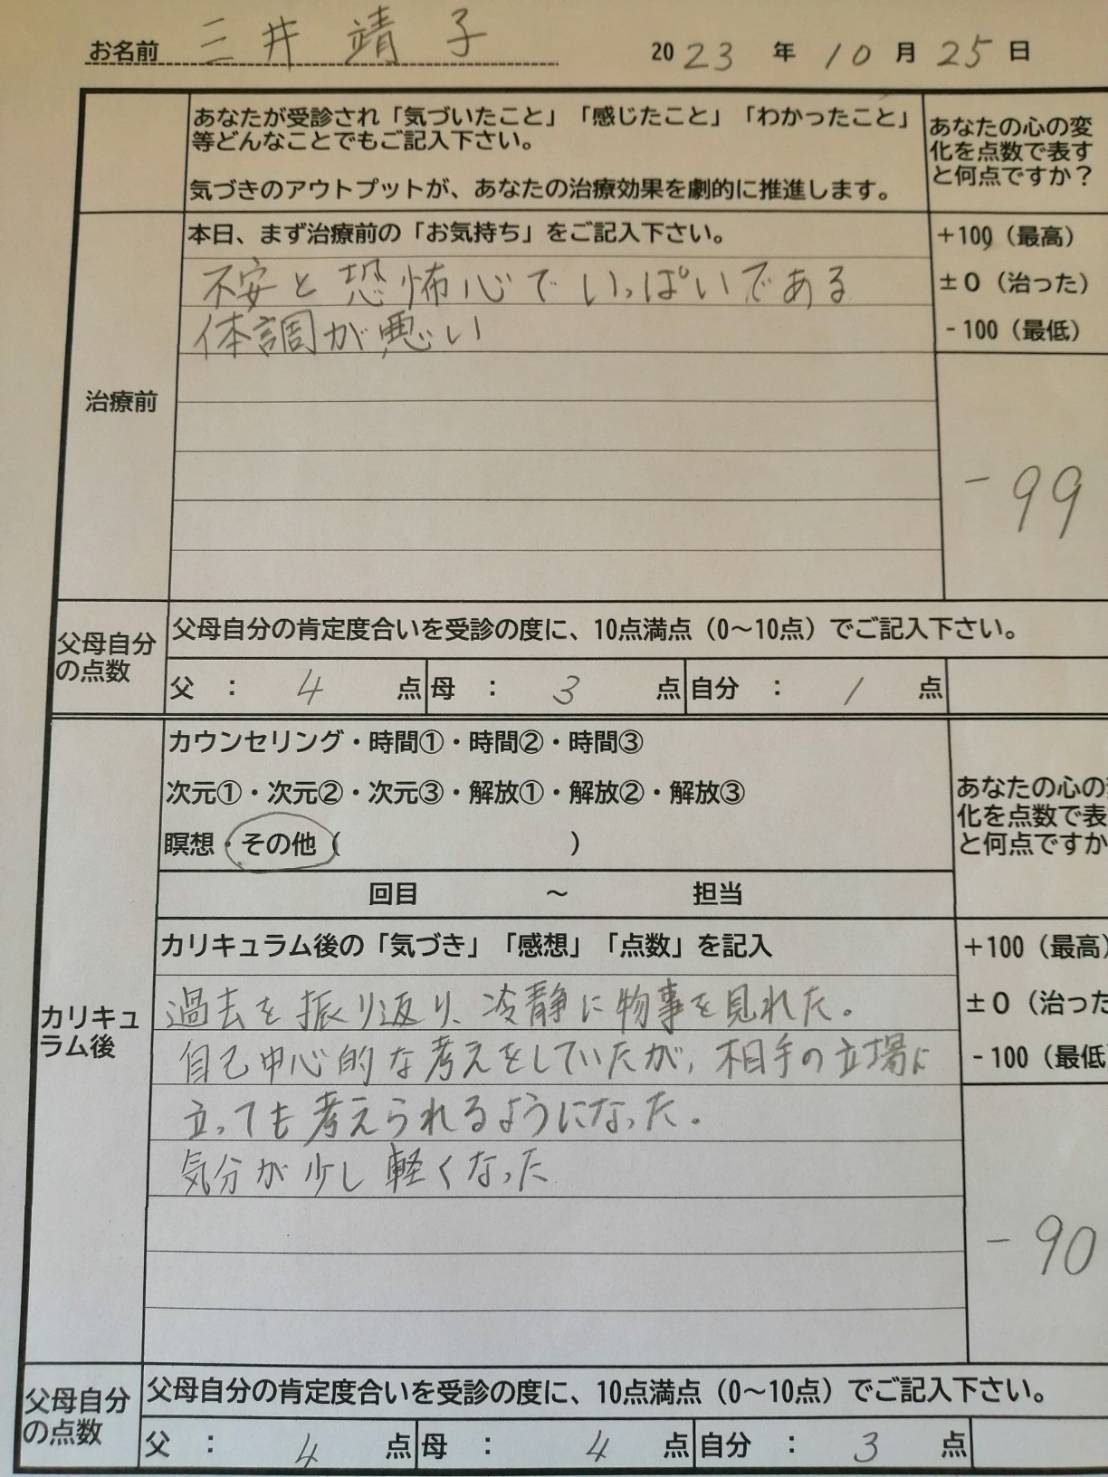 お名前 三井 靖子 2023年10月25日
あなたが受診され「気づいたこと」「感じたこと」「わかったこと」
等どんなことでもご記入下さい。
気づきのアウトプットが、あなたの治療効果を劇的に推進します。
あなたの心の変
化を点数で表す
と何点ですか?
治療前
本日、まず治療前の「お気持ち」をご記入下さい。
不安と恐怖心でいっぱいである
体調が悪い
+100(最高)
±0(治った)
-100(最低)
-99
父母自分
の点数
父母自分の肯定度合いを受診の度に、10点満点(0〜10点)でご記入下さい。
父 : 4 点 母 : 3 点 自分 : 1 点
カリキュ
ラム後
カウンセリング・時間①・時間②・時間③
次元①・次元②・次元③・解放①・解放②・解放③
瞑想・その他( )
回目 〜 担当
あなたの心の変
化を点数で表
と何点ですか
カリキュラム後の「気づき」「感想」「点数」を記入
過去を振り返り、冷静に物事を見れた。
自己中心的な考えをしていたが、相手の立場に
立っても考えられるようになった。
気分が少し軽くなった
+100(最高)
±0(治った
-100(最低
-90
父母自分
の点数
父母自分の肯定度合いを受診の度に、10点満点(0〜10点)でご記入下さい。
父 : 4 点 母 : 4 点 自分 : 3 点